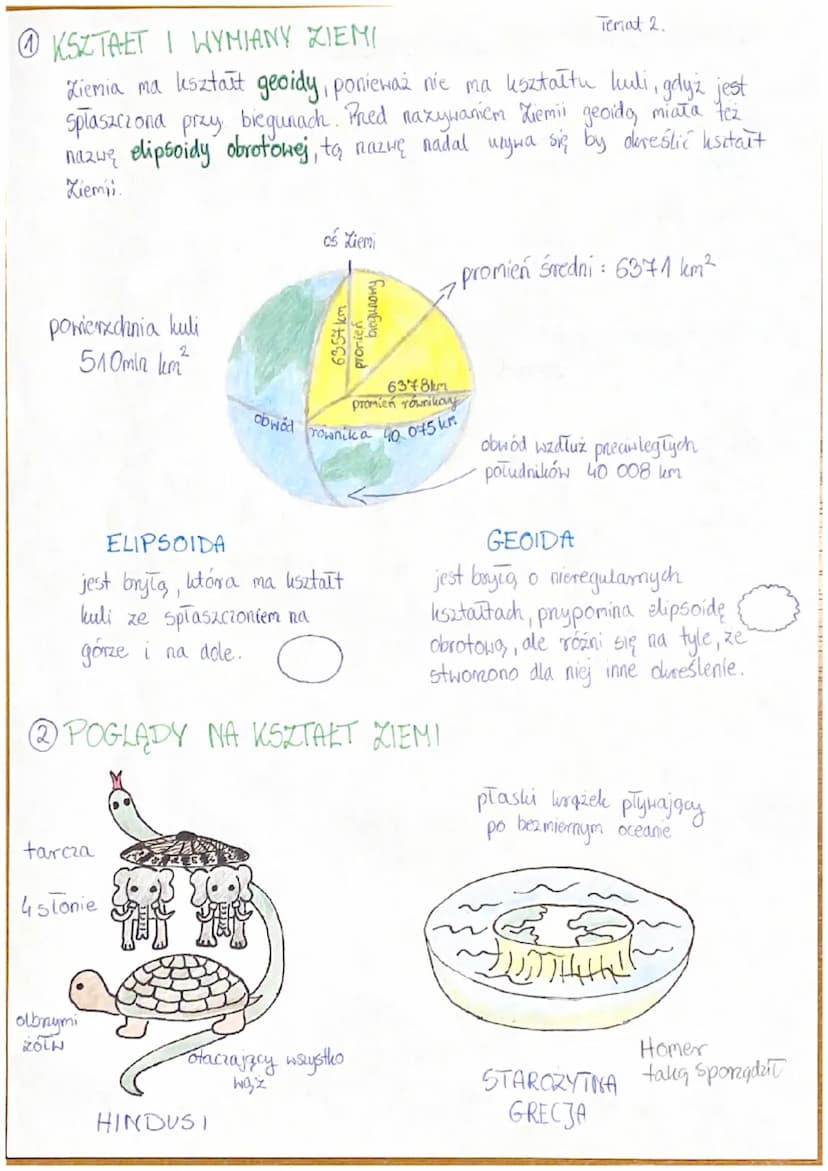 Temat 2.
① KSZTAŁT I WYMIANY ZIEMI
Ziemia ma kształt geoidy, ponieważ nie ma kształtu kuli, gdyż jest
spłaszczona przy biegunach. Przed nazywaniem Ziemii geoidą miała też
nazwę elipsoidy obrotowej, tą nazwę nadal używa się by określić kształt
Ziemii.
oś Ziemi
promień średni : 6371 km²
powierzchnia kuli
510mln km²
6357km
promień
biegunowy
6378km
promień równikowy
obwód równika 40 075 km
obwód wzdłuż przeciwległych
południków 40 008 km
ELIPSOIDA
jest bryłą, która ma kształt
kuli ze spłaszczoniem na
górze i na dole.
GEOIDA
jest bryłą o nieregularnych
kształtach, przypomina elipsoidę
obrotową, ale różni się na tyle, że
stworzono dla niej inne określenie.
② POGLĄDY NA KSZTAŁT ZIEMI
tarcza
4 słonie
olbrzymi
żółw
otaczający wszystko
wąż
HINDUSI
płaski krążek pływający
po bezmiernym oceanie
STAROŻYTNA
GRECJA
Homer
taką sporządził